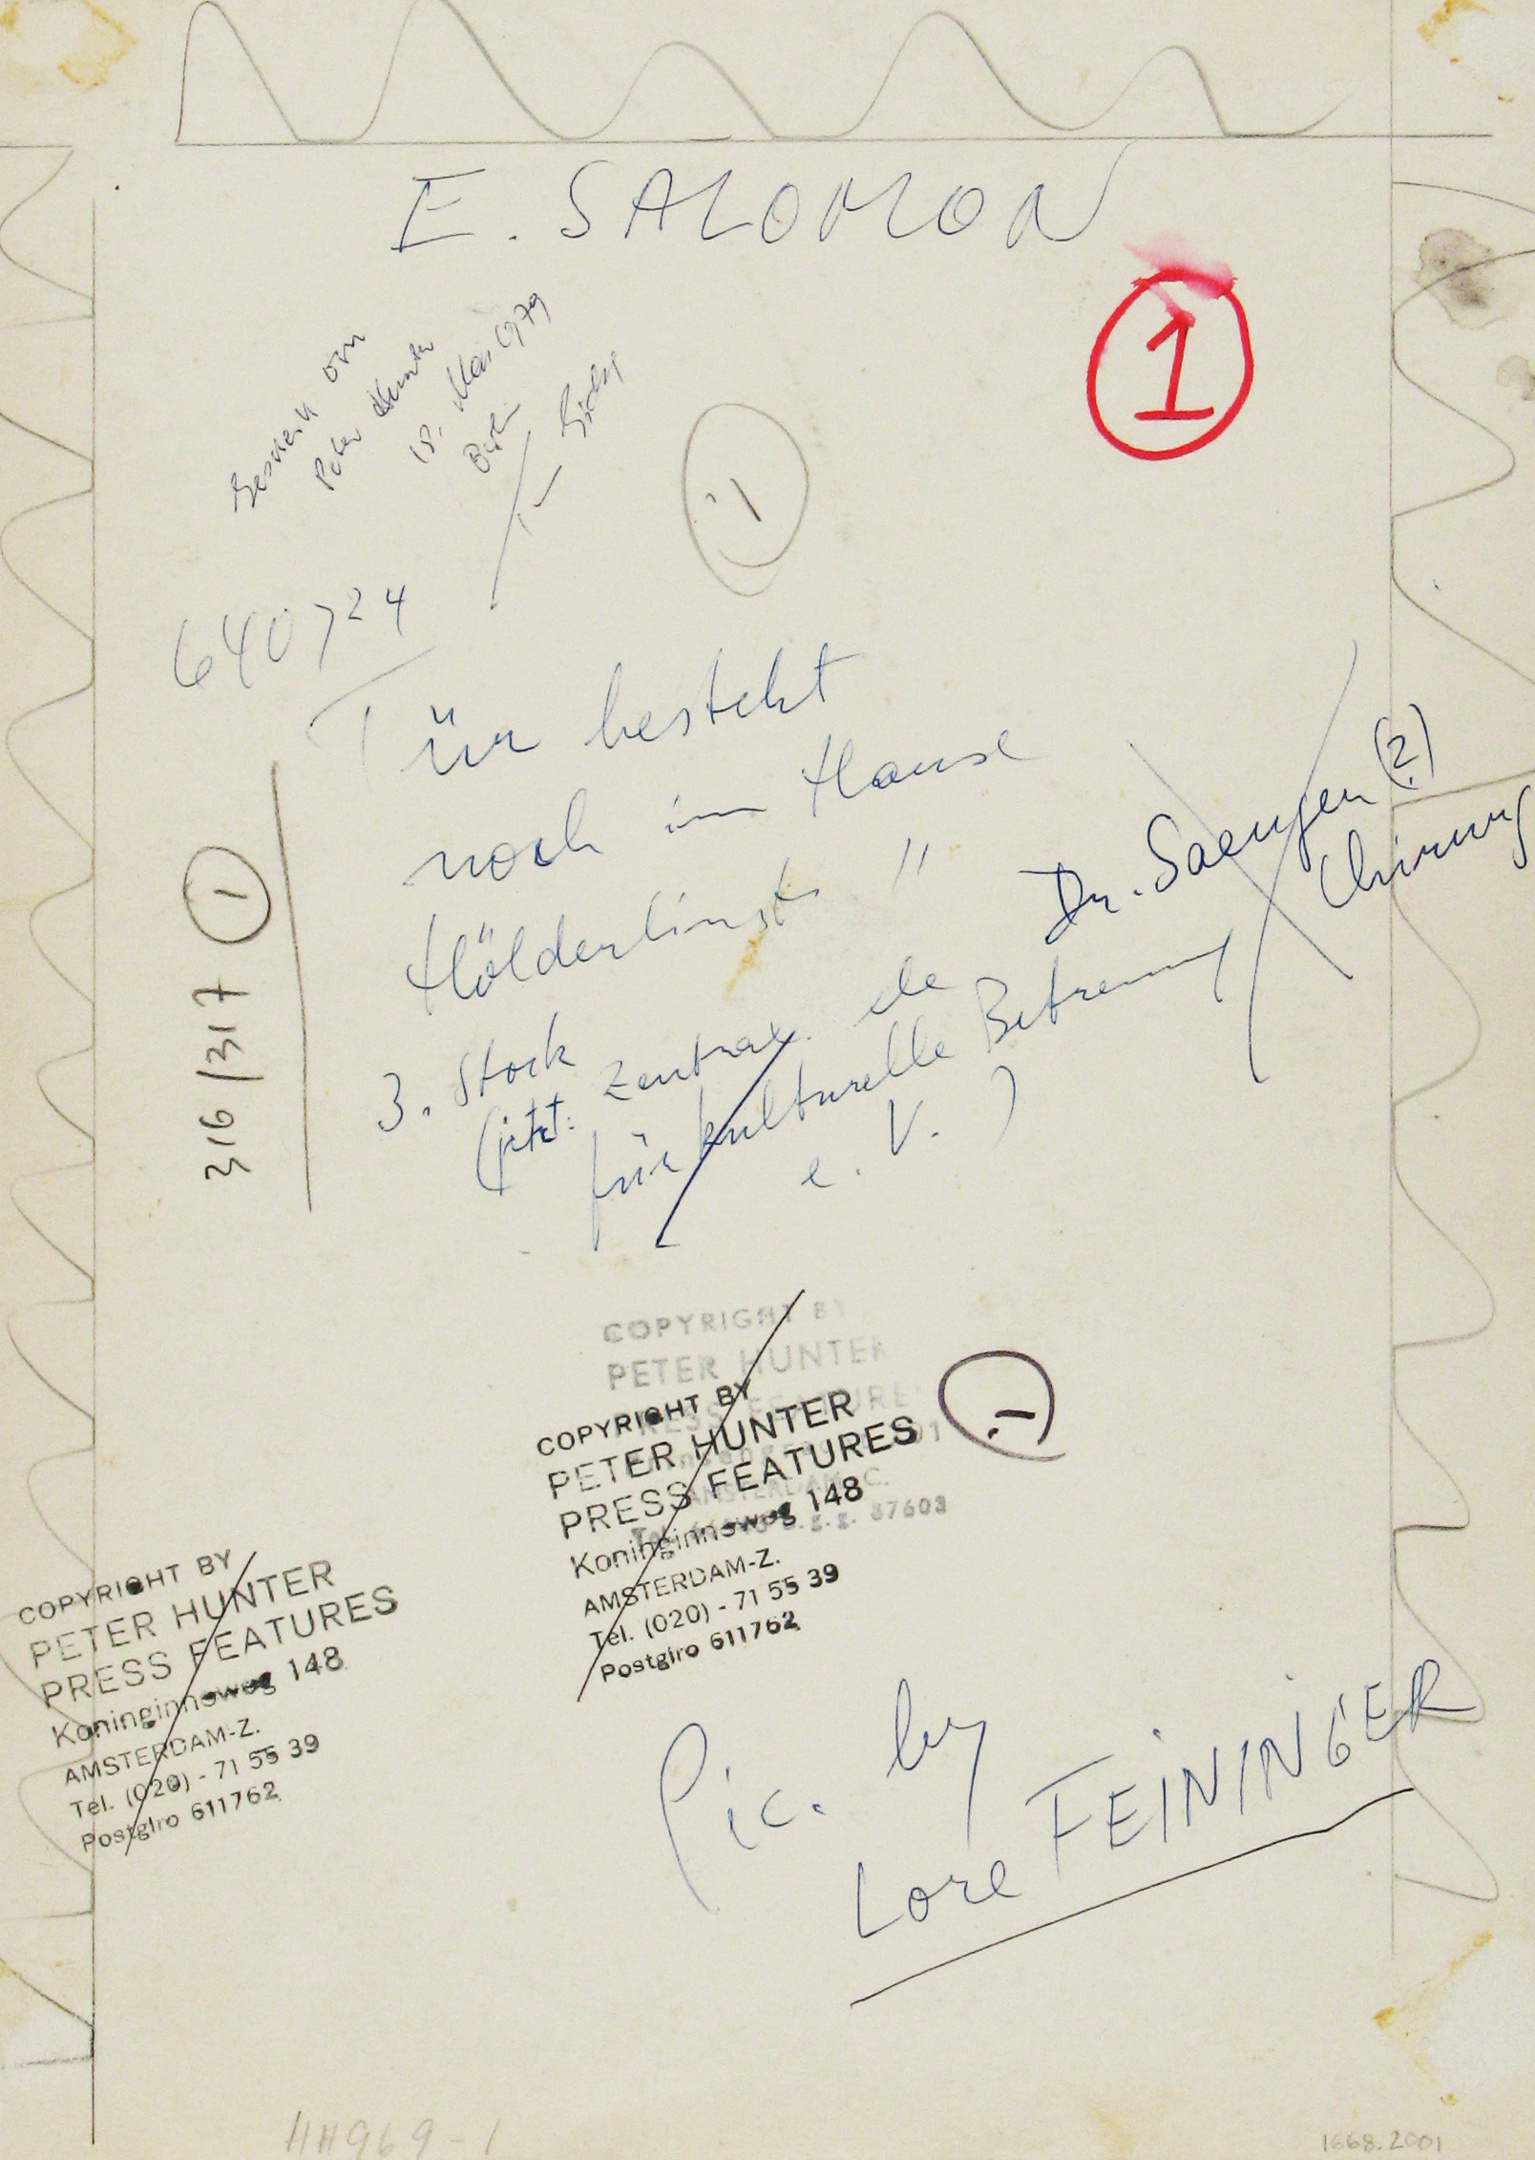 E. SALOMON
1
Geschenk von
Peter Hunter
18. Mai 1979
Berlin
1
640724
Tür besteht
noch im Hause
Hölderlinstr 11
Dr. Saengen (?)
Chirurg
3. Stock
(jetzt: Zentrale
für kulturelle Betreuung
e. V.)
316/317 1
COPYRIGHT BY
PETER HUNTER
COPYRIGHT BY
PETER HUNTER
PRESS FEATURES
Koninginneweg 148
AMSTERDAM-Z.
Tel. (020) - 71 55 39
Postgiro 611762
COPYRIGHT BY
PETER HUNTER
PRESS FEATURES
Koninginneweg 148
AMSTERDAM-Z.
Tel. (020) - 71 55 39
Postgiro 611762
Pic. by
Lore FEININGER
HH969-1
1668.2001